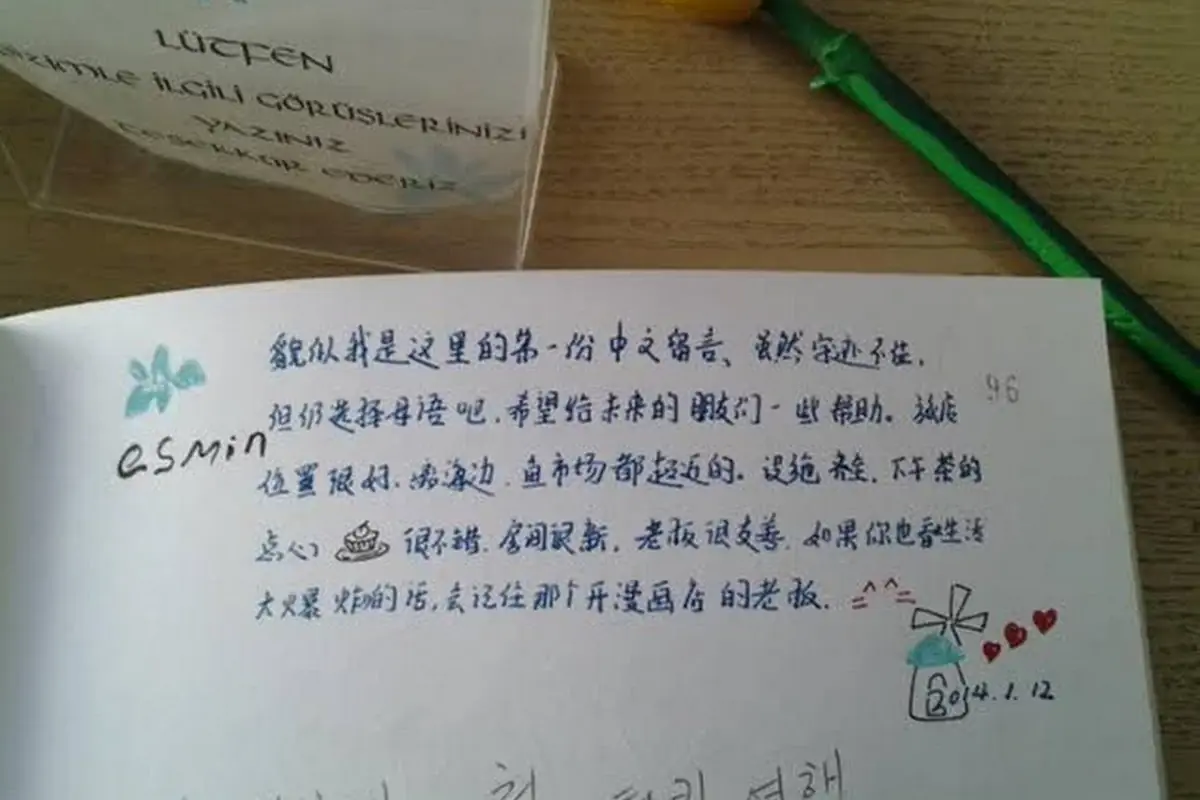 LÜTFEN
BİZİMLE İLGİLİ GÖRÜŞLERİNİZİ
YAZINIZ
TEŞEKKÜR EDERİZ
貌似我是这里的第一份中文留言、虽然字迹不佳，
但仍选择母语吧，希望给未来的朋友们一些帮助。旅店
96
esmin
位置很好，离海边、鱼市场都超近的。设施齐全，下午茶的
点心 很不错，房间很新，老板很友善，如果你也看生活
大爆炸的话，会记住那个开漫画店的老板. =^^=
2014.1.12
터키 여행